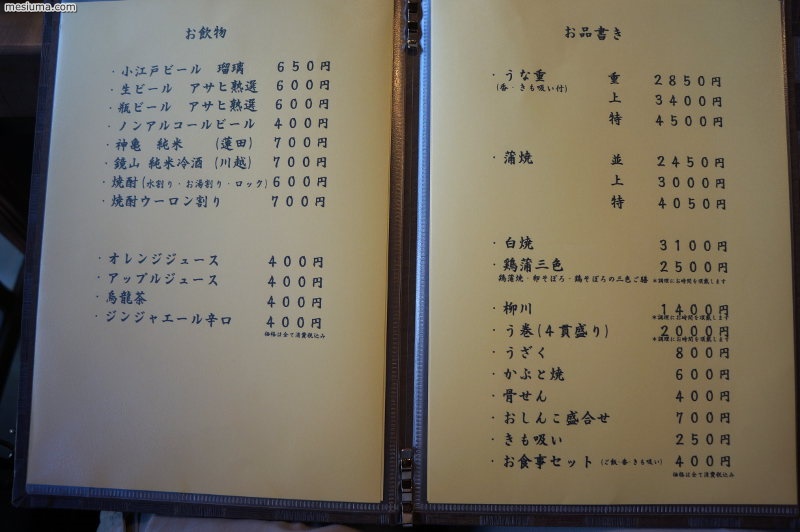 mesiuma.com
お飲物
・小江戸ビール 瑠璃 650円
・生ビール アサヒ熟選 600円
・瓶ビール アサヒ熟選 600円
・ノンアルコールビール 400円
・神亀 純米 (蓮田) 700円
・鏡山 純米冷酒 (川越) 700円
・焼酎(水割り・お湯割り・ロック) 600円
・焼酎ウーロン割り 700円
・オレンジジュース 400円
・アップルジュース 400円
・烏龍茶 400円
・ジンジャエール辛口 400円
価格は全て消費税込み
お品書き
・うな重 重 2850円
(香・きも吸い付) 上 3400円
特 4500円
・蒲焼 並 2450円
上 3000円
特 4050円
・白焼 3100円
・鶏蒲三色 2500円
鶏蒲焼・卵そぼろ・鶏そぼろの三色ご膳 *調理にお時間を頂戴します
・柳川 1400円
*調理にお時間を頂戴します
・う巻(4貫盛り) 2000円
*調理にお時間を頂戴します
・うざく 800円
・かぶと焼 600円
・骨せん 400円
・おしんこ盛合せ 700円
・きも吸い 250円
・お食事セット (ご飯・香・きも吸い) 400円
価格は全て消費税込み